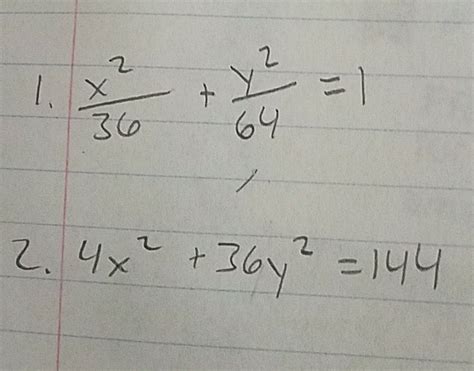 1. x²/36 + y²/64 = 1
2. 4x² + 36y² = 144